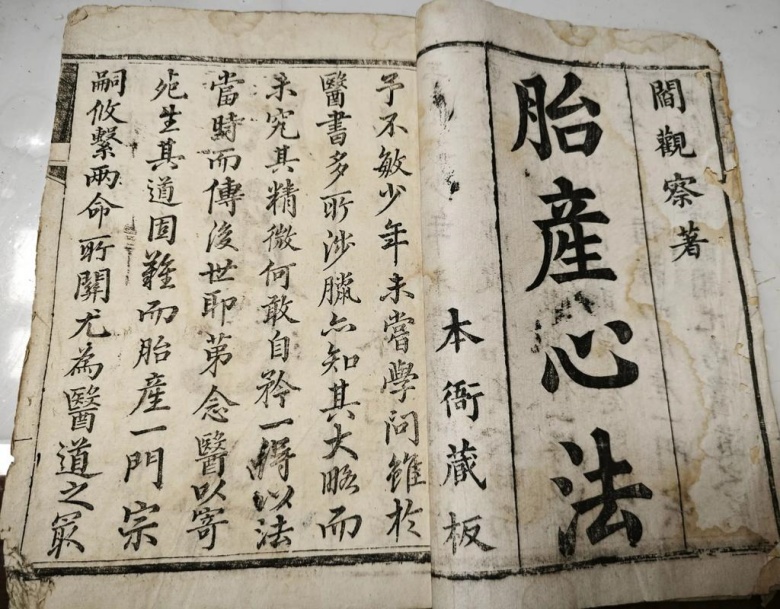 閻觀察著
胎產心法
本衙藏板
予不敏少年未嘗學問雖於
醫書多所涉臘亦知其大略而
未究其精微何敢自矜一得以法
當時而傳後世耶第念醫以寄
死生其道固難而胎產一門宗
嗣攸繫兩命所關尤為醫道之冣